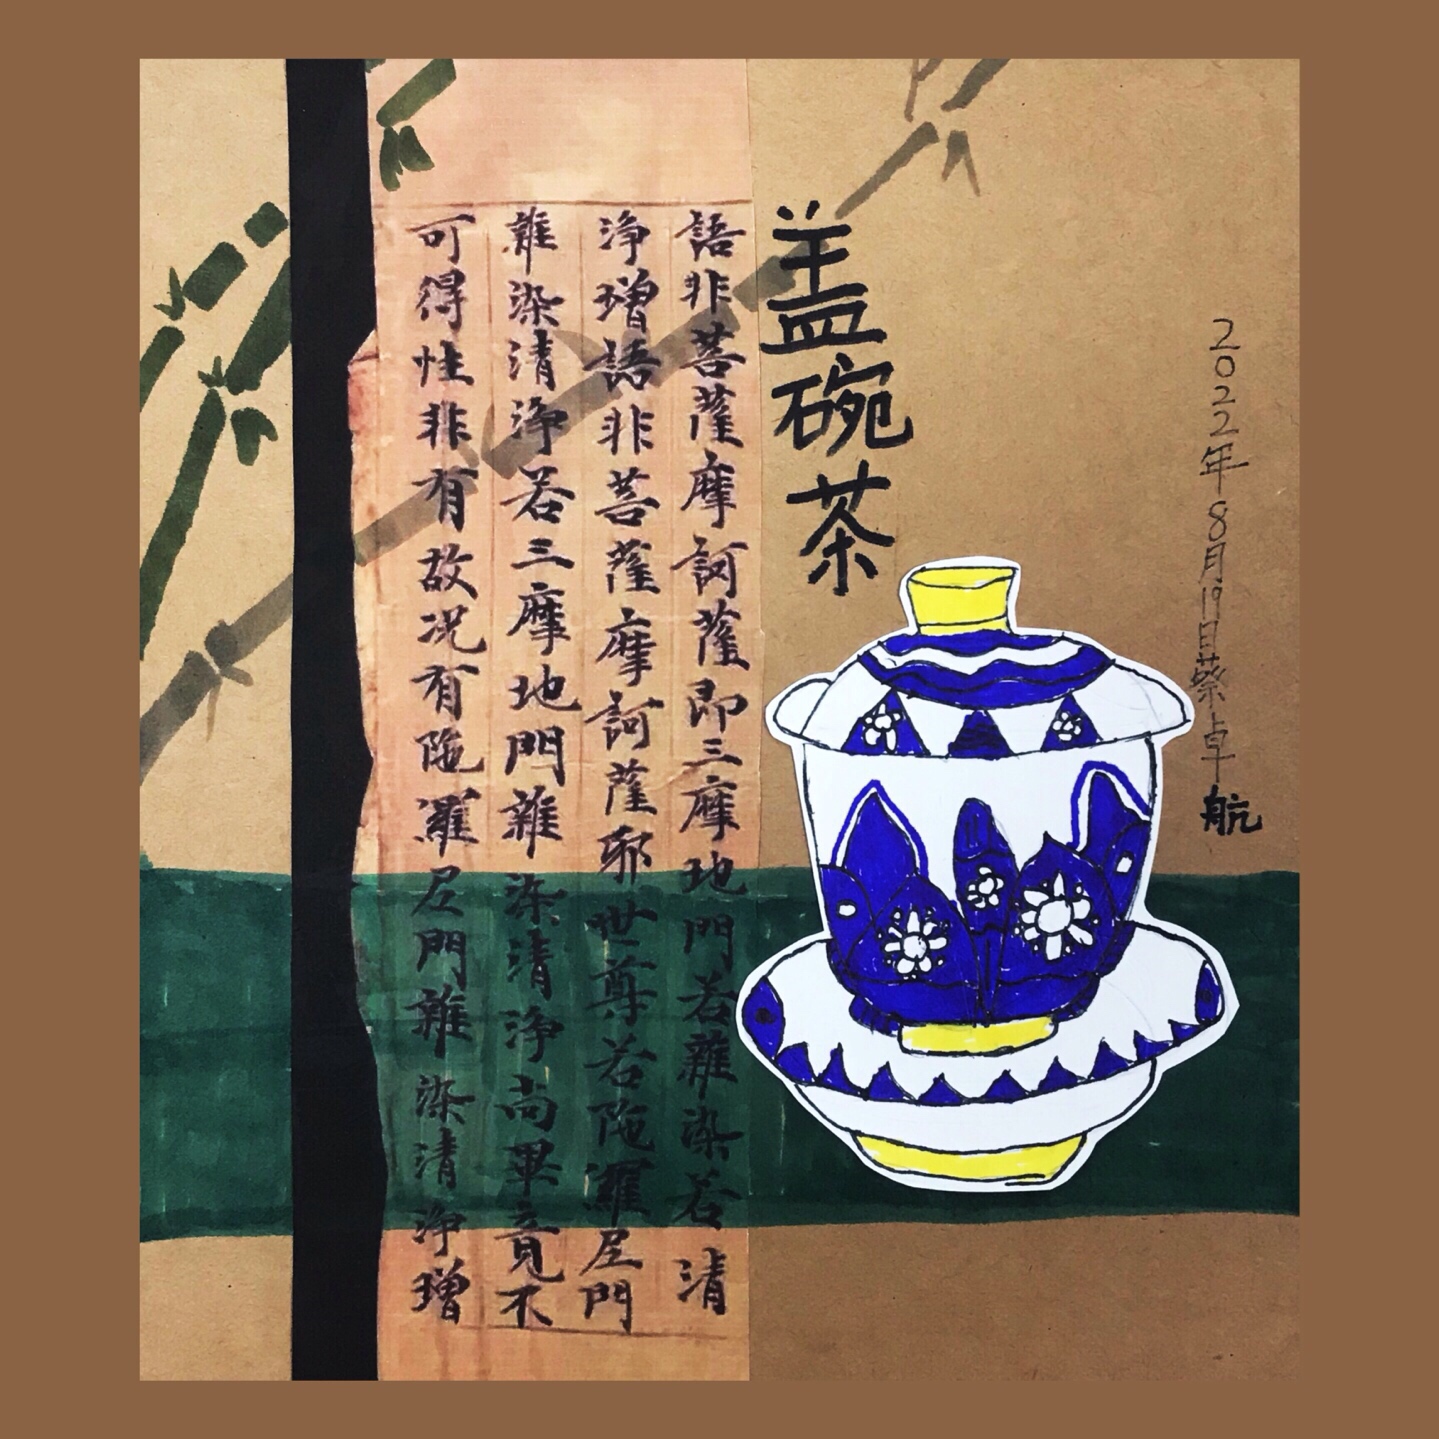 2022年8月19日蔡卓航
盖碗茶
語非菩薩摩訶薩即三摩地門若雜染若清
淨增語非菩薩摩訶薩耶世尊若陁羅尼門
雜染清淨若三摩地門雜染清淨尚畢竟不
可得性非有故况有陁羅尼門雜染清淨增